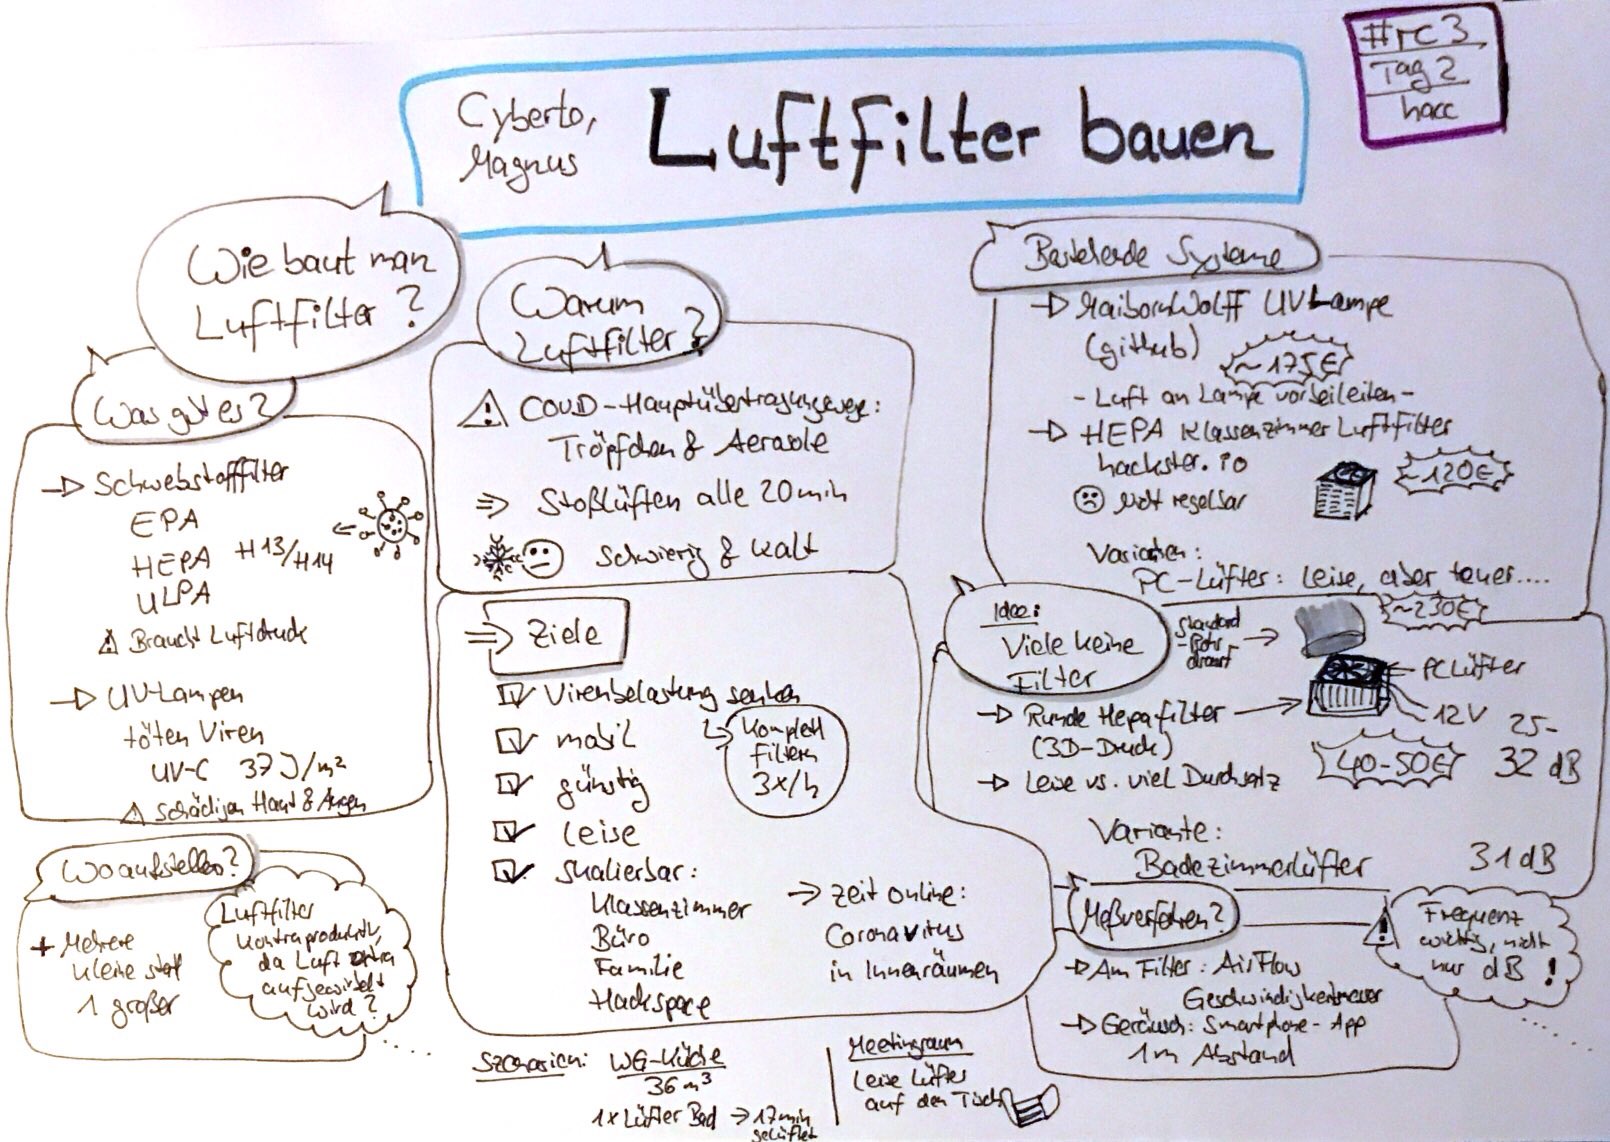 #rc3
Tag 2
hacc
Cyberto,
Magnus
Luftfilter bauen
Wie baut man
Luftfilter?
Was gibt es?
→ Schwebstofffilter
EPA
HEPA H13/H14
ULPA
Braucht Luftdruck
→ UV-Lampen
töten Viren
UV-C 37 J/m²
Schädigen Haut & Augen
Wo aufstellen?
+ Mehrere
kleine statt
1 großer
Luftfilter
kontraproduktiv,
da Luft extra
aufgewirbelt
wird?
Warum
Luftfilter?
COVID-Hauptübertragungswege:
Tröpfchen & Aerosole
⇒ Stoßlüften alle 20 min
Schwierig & kalt
⇒ Ziele
Virenbelastung senken
↳ Komplett
filtern
3x/h
mobil
günstig
leise
skalierbar:
Klassenzimmer
Büro
Familie
Hackspace
→ Zeit online:
Coronavirus
in Innenräumen
Szenarien:
WG-Küche
36 m³
1x Lüfter Bad → 17min
gelüftet
Meetingraum
Leise Lüfter
auf den Tisch
Bestehende Systeme
→ MaibornWolff UV-Lampe
(github)
~175€
- Luft an Lampe vorbeileiten -
→ HEPA Klassenzimmer Luftfilter
hackster.io
~120€
Nicht regelbar
Varianten:
PC-Lüfter: Leise, aber teuer....
~230€
Idee:
Viele kleine
Filter
Standard
-Rohr
drauf
→
← PC Lüfter
12V
→ Runde Hepafilter →
(3D-Druck)
→ Leise vs. viel Durchsatz
40-50€
25-
32 dB
Variante:
Badezimmerlüfter
31 dB
Meßverfahren?
→ Am Filter: AirFlow
Geschwindigkeitmesser
→ Geräusch: Smartphone-App
1m Abstand
Frequenz
wichtig, nicht
nur dB!